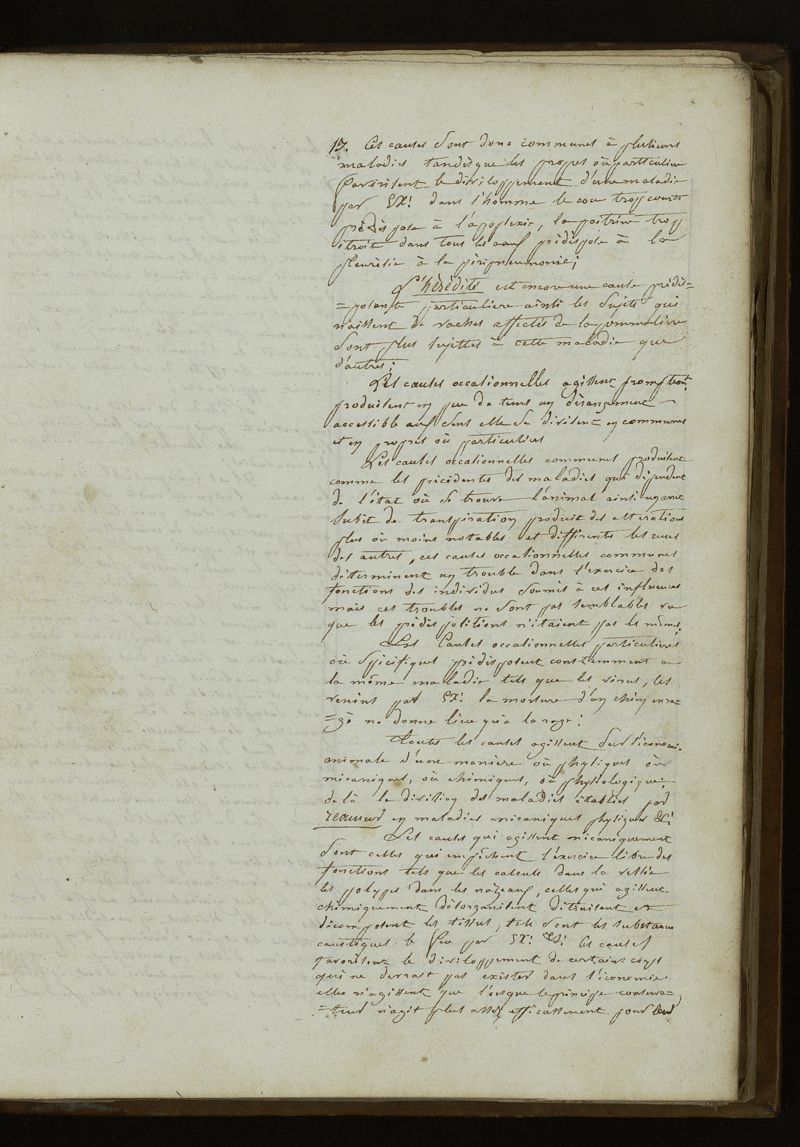 17. Ces causes sont donc communes à plusieurs
maladies tandisque les propres où particulieres
favorisent le dévéloppement d'une maladie
par EX! dans l'homme le cou trop court
prédispose à l'apoplexie, la poitrine trop
étroite dans tous les cas prédispose à la
pleurésie à la péripneumonie;
L'hérédité est encore une cause prédis=
=posante particuliere ainsi les sujets qui
naissent de vaches affectés de la pommeliere
sont plus sujettes à cette maladie que
d'autres;
Les causes occasionnelles agissent promptemt
produisent en peu de tems un dérangement
accessible aux sens elle se divisent en communes
et en propres où particulieres
Les causes occasionnelles communes produisent
comme les précédentes des maladies qui dépendent
de l'état où se trouve l'animal ainsi un arret
subit de transpiration produit des altérations
plus où moins notables et différentes les unes
des autres, ces causes occasionnelles communes
déterminent un trouble dans l'exercice des
fonctions des individus soumis à ces influences
mais ces troubles ne sont pas semblables vu
que les prédispositions n'étaient pas les mêmes;
Les Causes occasionnelles particulieres
où spécifiques prédisposent constamment a
la même maladie tels que les virus, les
venins par EX! la morsure d'un chien enra=
=gé ne donne lieu qu'a la rage;
Toutes les causes agissent sur l'économie
animale d'une maniere où physiques où
mécaniques, où chimiques, où physiologique;
de là la division des maladies établies par
en maladies mécaniques physiques &!
Les causes qui agissent mécaniquement
sont celles qui empêchent l'exercice libre des
fonctions tels que les calculs dans la vessie
les polypes dans les nazeaux, celles qui agissent
chimiquement désorganisent détruisent et
décomposent les tissus, tels sont les substances
caustiques le feu par EX! &! Ces causes
favorisent le dévéloppement de certains corps
qui ne devrait pas exister dans l'économie
elles n'agissent que lorsque le principe conserva=
=teur n'agit plus assez efficassement pour